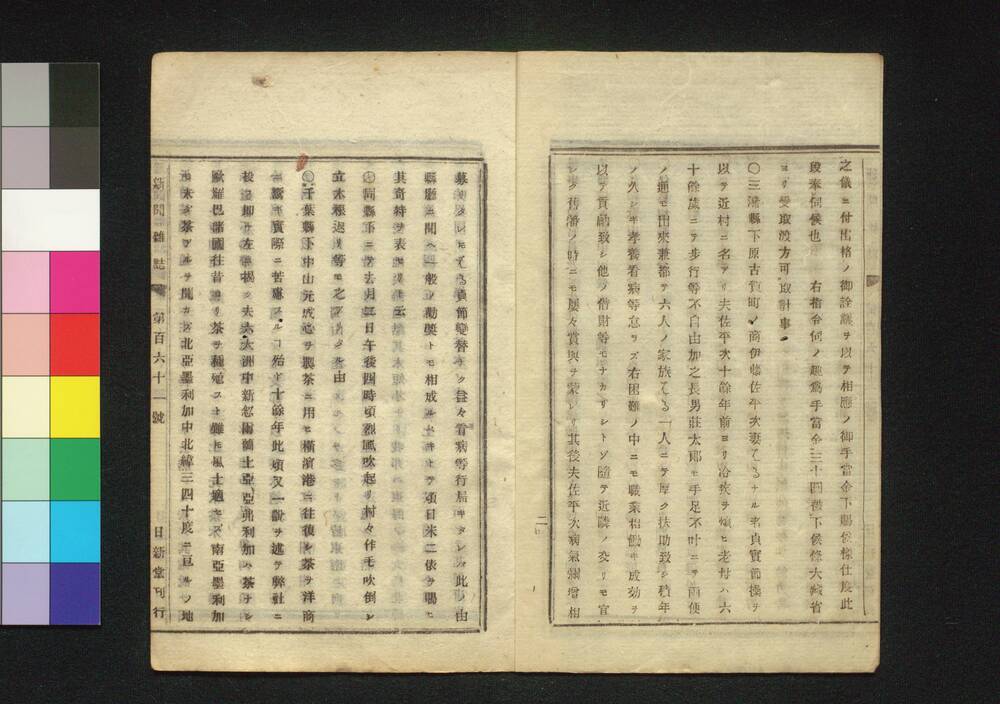 之儀ニ付出格ノ御詮議ヲ以テ相應ノ御手當金下賜候樣仕度此
段奉伺候也 右指令伺ノ趣爲手當金三十四下候條大藏省
ヨリ受取渡方可取計事
〇三潴縣下原古賀町ノ商伊藤佐平次妻てるナル者貞實節操ヲ
以テ近村ニ名アリ夫佐平次十餘年前ヨリ冷疾ヲ煩ヒ老母ハ六
十餘歳ニテ歩行等不自由加之長男莊太郎モ手足不叶ニテ兩便
ノ通モ出來兼都テ六人ノ家族てる一人ニテ厚ク扶助致シ積年
ノ久シキ孝養看病等怠ラズ右困難ノ中ニモ職業相働キ成効ヲ
以テ貢納致シ他ノ借財等モナカリシトゾ隨テ近隣ノ交リモ宜
シク舊藩ノ時ニモ屢々賞與ヲ蒙レリ其後夫佐平次病氣彌增相
募リタレモてる貞節變替ナク益々看病等行屆キタレバ此ノ由
縣廳ニ聞ヘ一般ノ勸奬トモ相成ルベキトテ頃日米二俵ヲ賜ヒ
其奇特ヲ表セリト云
〇同縣下ニテ去月二日午後四時頃烈風吹起リ村々作毛吹倒シ
立木根返リ等モ之アリタル由
〇千葉縣下中山元成心ヲ製茶ニ用ヒ橫濱港ニ往復シ茶ヲ洋商
ニ鬻キ實際ニ苦慮スルコ殆ド十餘年此頃又一說ヲ述テ弊社ニ
投ズ即チ左ニ揭ク夫六大洲中新怱兩額土亞亞弗利加ハ茶ナシ
歐羅巴諸國往昔ヨリ茶ヲ種殖スト雖モ風土適セズ南亞墨利加
モ未ダ茶アルヲ聞カズ北亞墨利加中北緯三四十度ニ亘ルノ地
新聞雜誌 第百六十一號 日新堂刊行
二